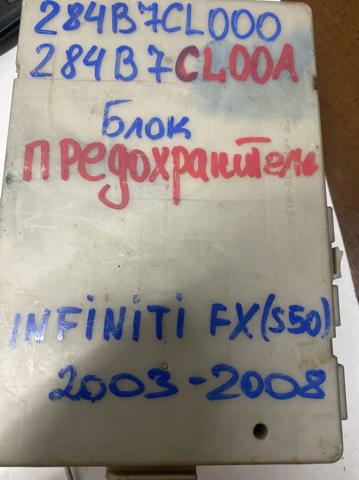 284B7CL000
284B7CL00A
Блок
ПРедохранитель
INFINITI FX(S50)
2003-2008